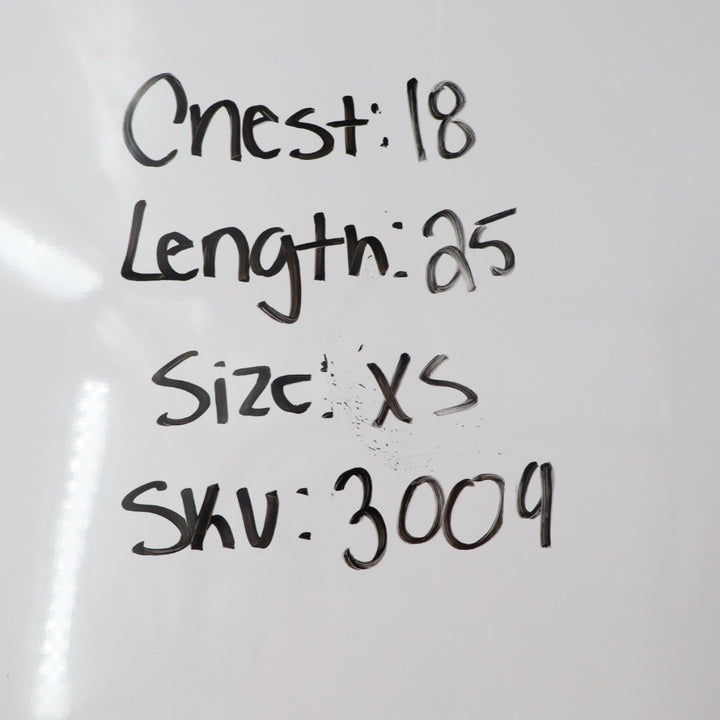 Chest: 18
Length: 25
Size: XS
SKU: 3009